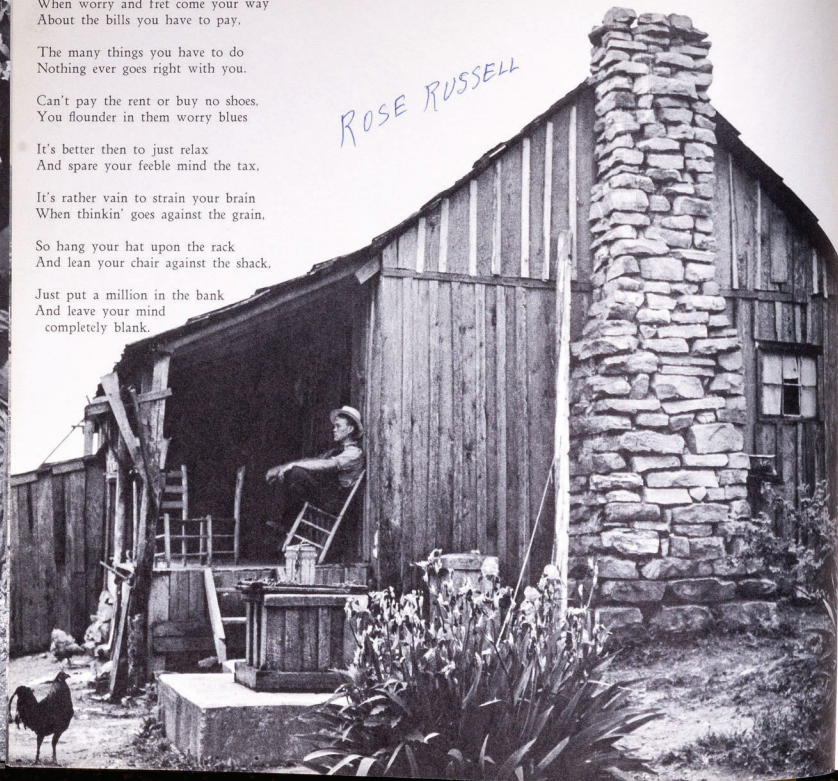 When worry and fret come your way
About the bills you have to pay,
The many things you have to do
Nothing ever goes right with you.
Can't pay the rent or buy no shoes,
You flounder in them worry blues
It's better then to just relax
And spare your feeble mind the tax,
It's rather vain to strain your brain
When thinkin' goes against the grain,
So hang your hat upon the rack
And lean your chair against the shack,
Just put a million in the bank
And leave your mind
completely blank.
ROSE RUSSELL